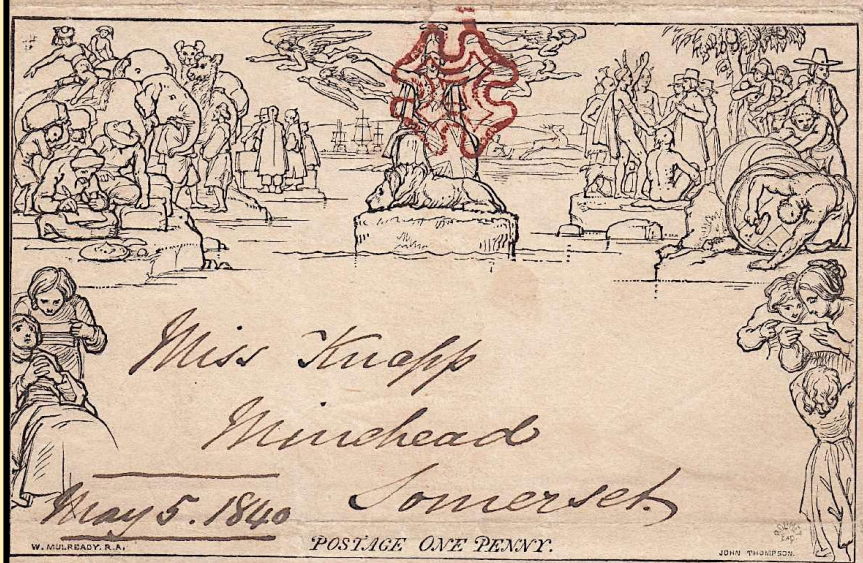 Miss Knapp
Minehead
Somerset
May 5. 1840
W. MULREADY. R.A.
POSTAGE ONE PENNY.
JOHN THOMPSON.